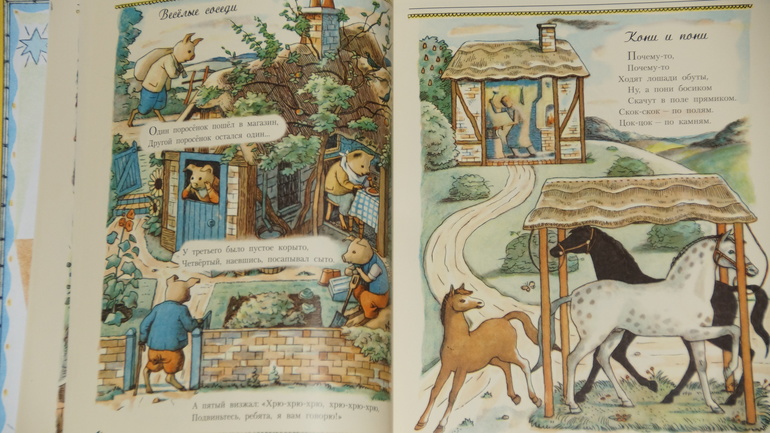 Весёлые соседи
Один поросёнок пошёл в магазин,
Другой поросёнок остался один...
У третьего было пустое корыто,
Четвёртый, наевшись, посапывал сыто.
А пятый визжал: «Хрю-хрю-хрю, хрю-хрю-хрю,
Подвиньтесь, ребята, я вам говорю!»
Кони и пони
Почему-то,
Почему-то
Ходят лошади обуты,
Ну, а пони босиком
Скачут в поле прямиком.
Скок-скок — по полям.
Цок-цок — по камням.